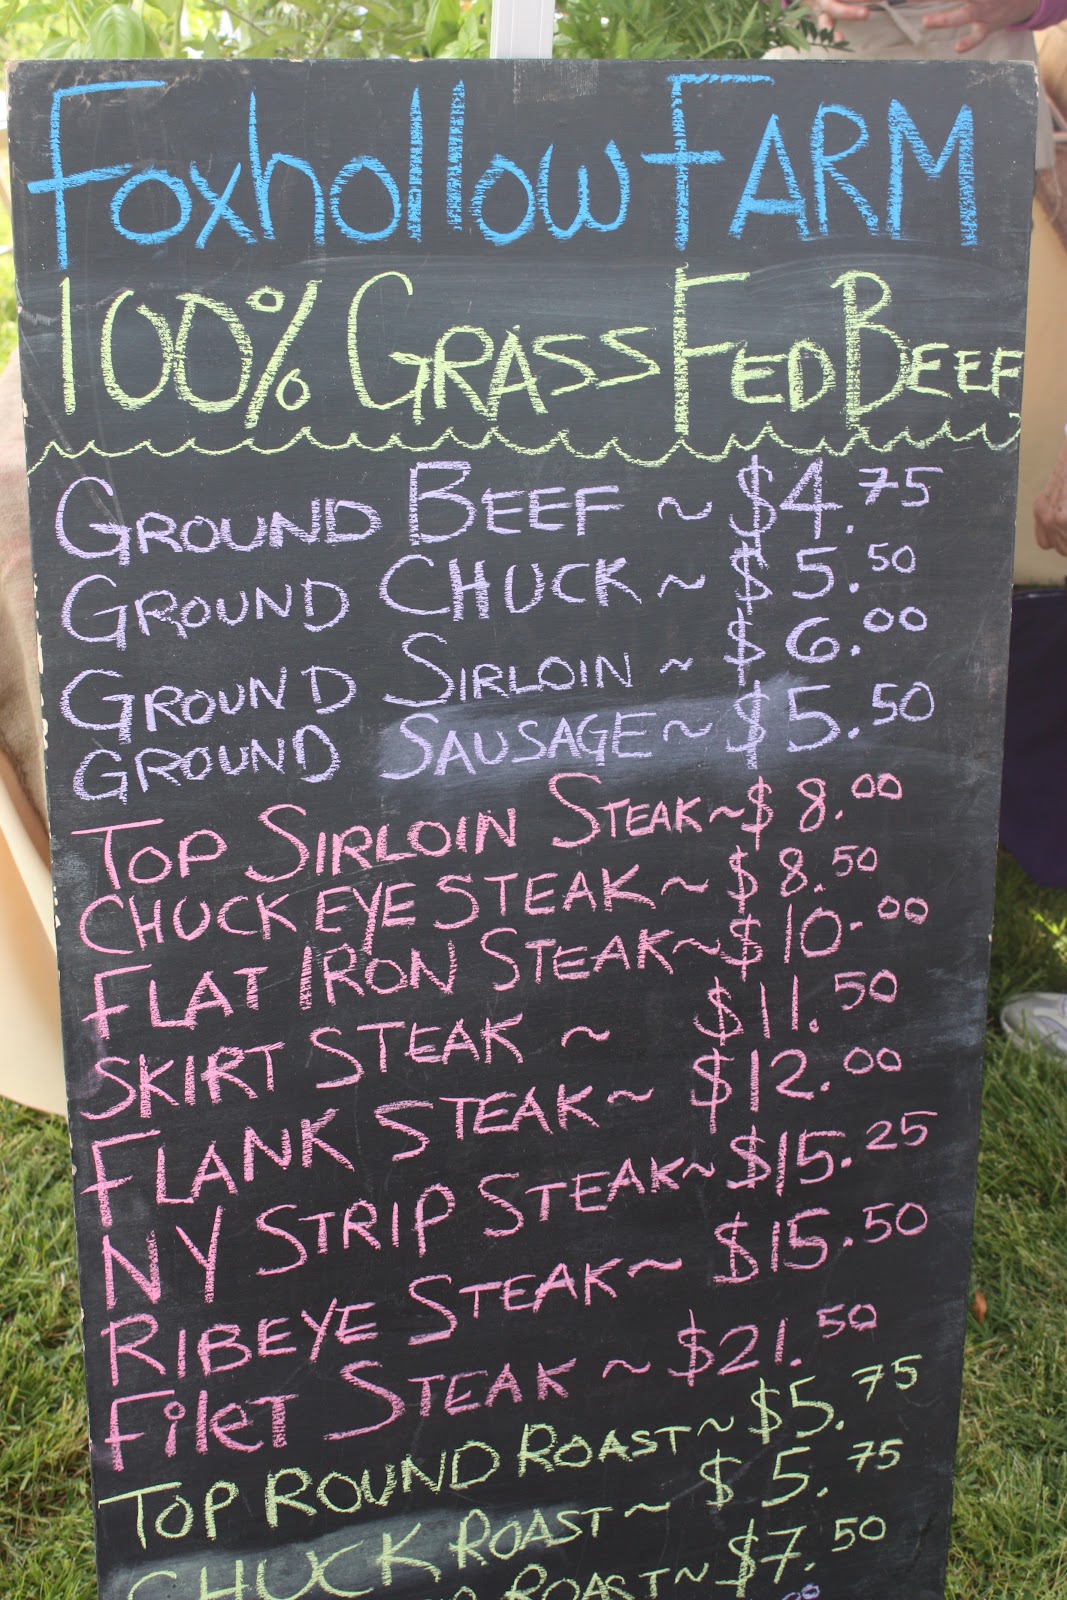 Foxhollow FARM
100% GRASS FED BEEF
GROUND BEEF ~ $4.75
GROUND CHUCK ~ $5.50
GROUND SIRLOIN ~ $6.00
GROUND SAUSAGE ~ $5.50
TOP SIRLOIN STEAK ~ $8.00
CHUCK EYE STEAK ~ $8.50
FLAT IRON STEAK ~ $10.00
SKIRT STEAK ~ $11.50
FLANK STEAK ~ $12.00
NY STRIP STEAK ~ $15.25
RIBEYE STEAK ~ $15.50
FilET STEAK ~ $21.50
TOP ROUND ROAST ~ $5.75
CHUCK ROAST ~ $5.75
ROAST ~ $7.50